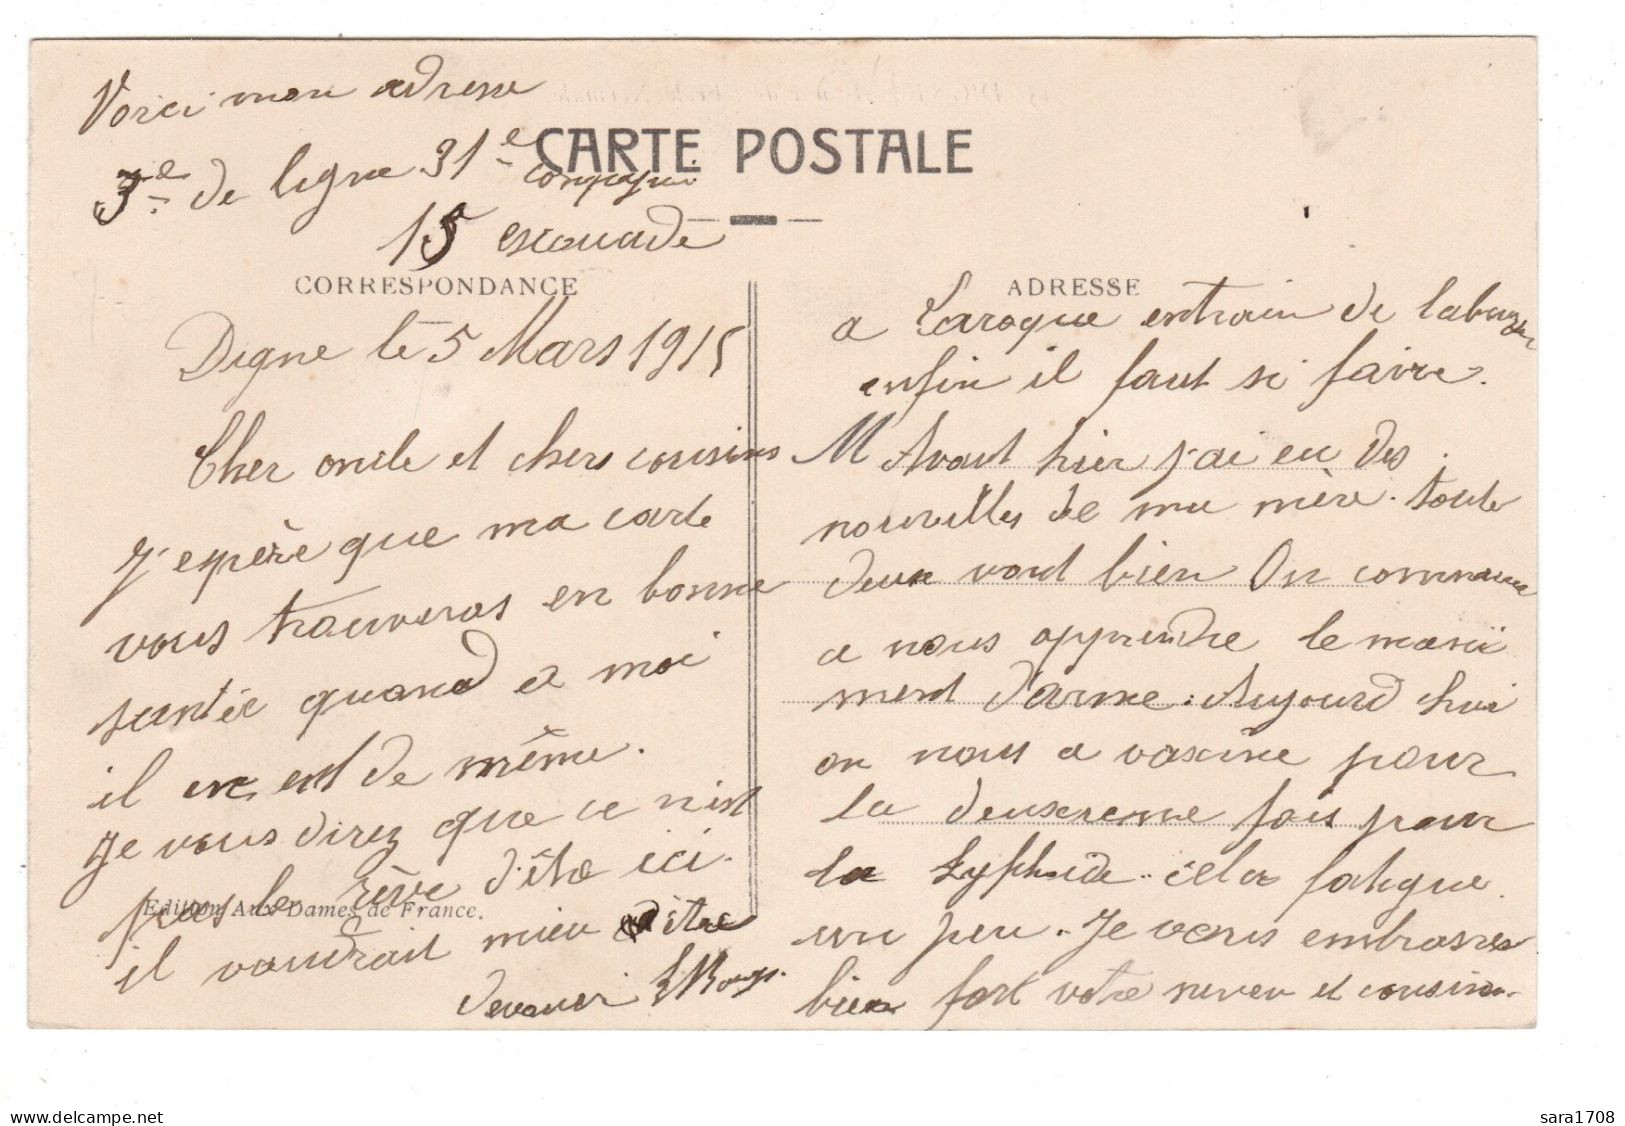 Voici mon adresse
3e de ligne 31e compagni
15 escouade
CARTE POSTALE
CORRESPONDANCE
Digne le 5 Mars 1915
Cher oncle et chers cousins
J'espère que ma carte
vous trouveras en bonne
santée quand a moi
il en est de même.
Je vous direz que ce n'est
pas le rêve d'être ici.
Edition Aux Dames de France.
il voudrait mieu d'être
ADRESSE
a Laroque entrain de
enfin il faut si faire.
M Avant hier j'ai eu des
nouvelles de ma mère. toute
deux vont bien On commence
a nous apprendre le mani
ment d'arme. Aujourd hui
on nous a vaxine pour
la deuxieme fois pour
la typhoide. cela fatigue
un peu. Je vous embrasses
bien fort votre neveu et cousin
sara1708